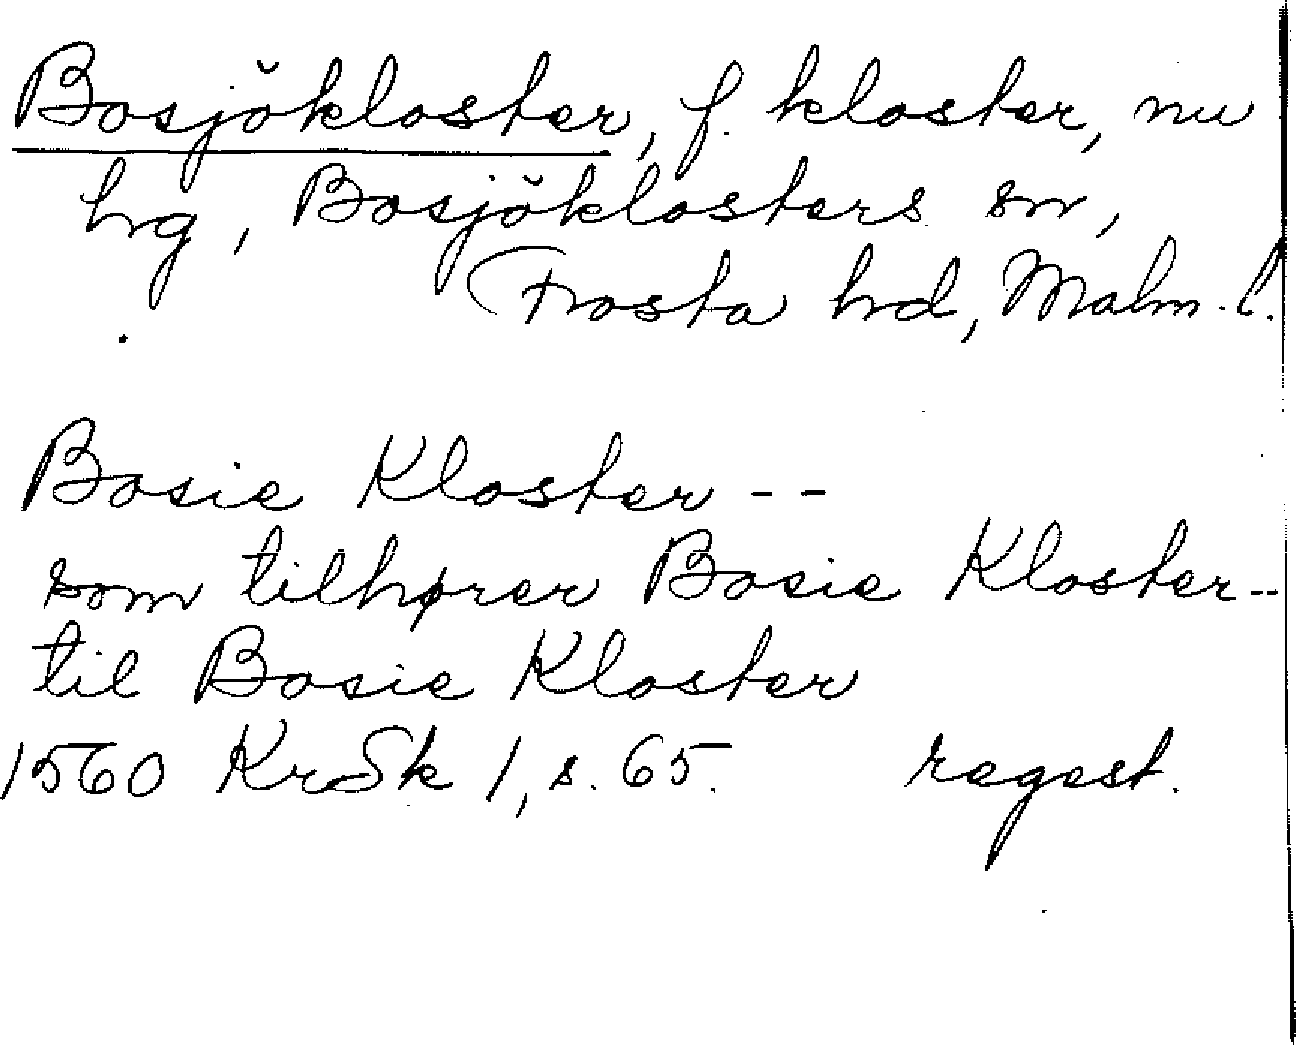 Bosjökloster, f. kloster, nu
hg, Bosjöklosters sn,
Frosta hd, Malm. l.
Bosie Kloster --
som tilhører Bosie Kloster --
til Bosie Kloster
1560 KrSk 1, s. 65. regest.